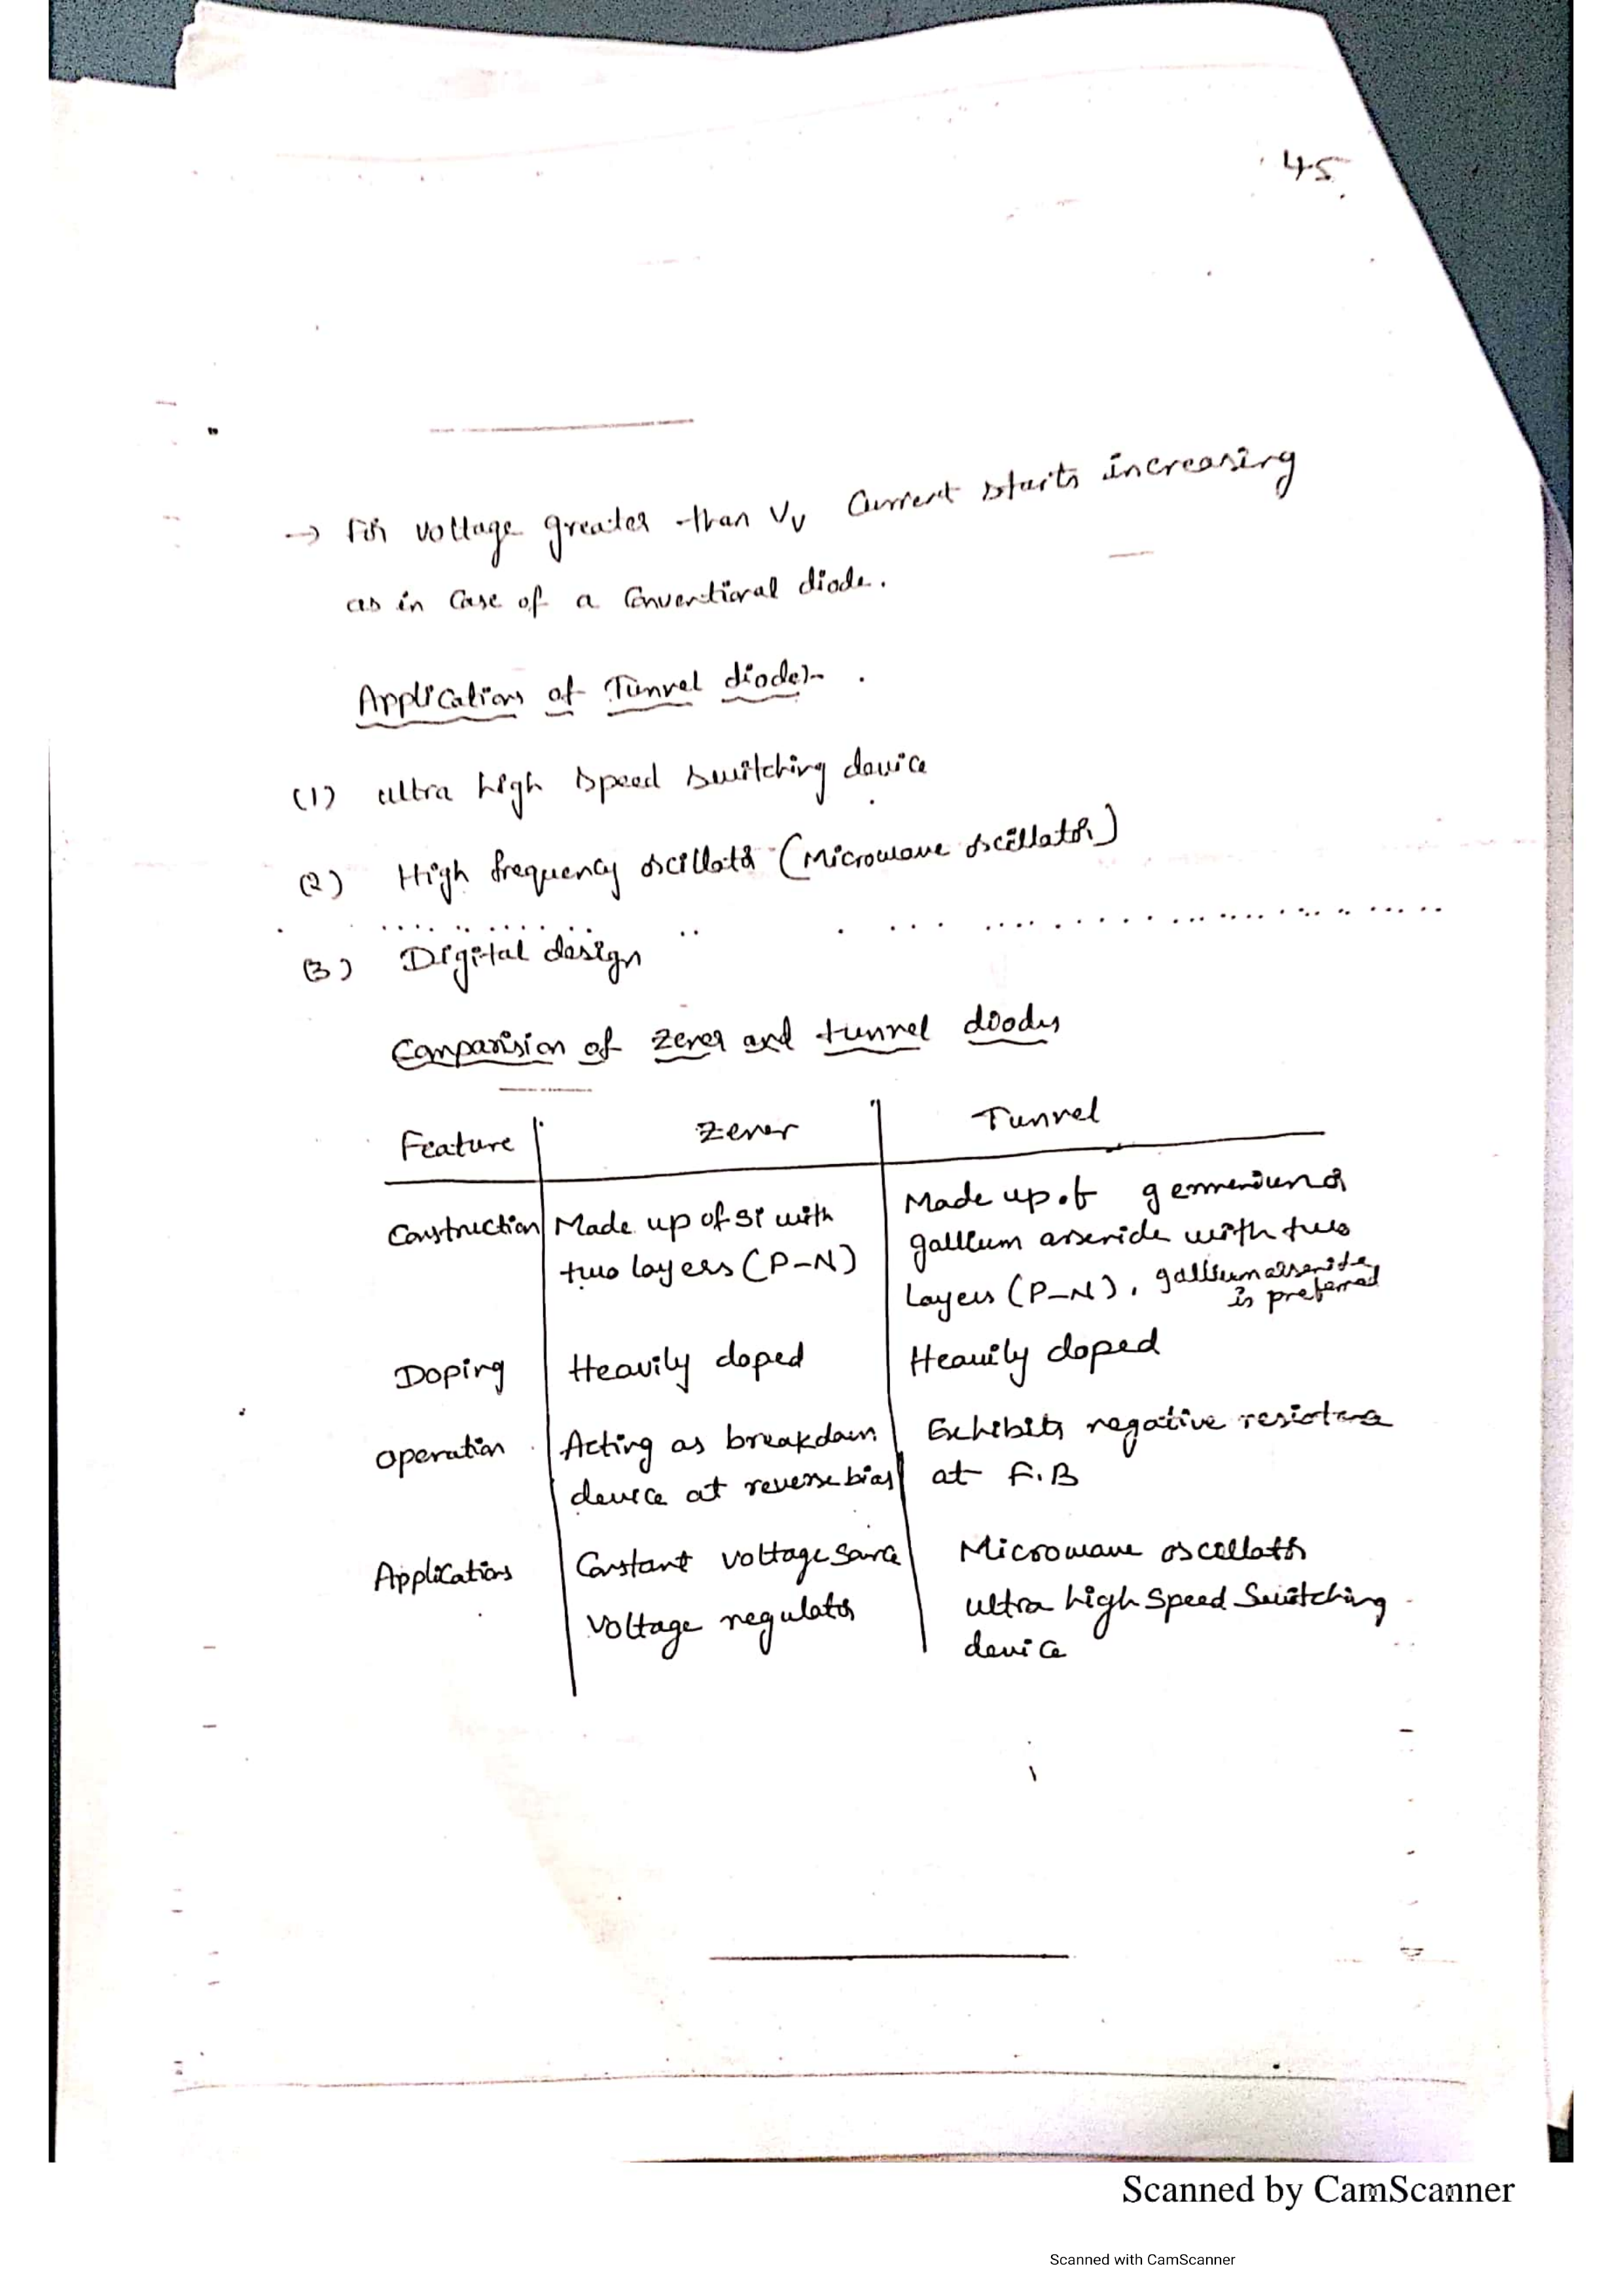 45
→ For voltage greater than Vv Current starts increasing
as in Case of a Conventional diode.
Applications of Tunnel diode:-
(1) ultra high speed switching device
(2) High frequency oscillator (Microwave oscillator)
(3) Digital design
Comparision of Zener and tunnel diodes
Feature Zener Tunnel
Construction Made up of Si with two layers (P-N) Made up of germenium or
gallium arsenide with two
layers (P-N), gallium arsenide
is preferred
Doping Heavily doped Heavily doped
operation Acting as breakdown Exhibits negative resistance
device at reverse bias at F.B
Applications Constant voltage source Microwave oscillator
Voltage regulator ultra high speed Switching
device
Scanned by CamScanner
Scanned with CamScanner